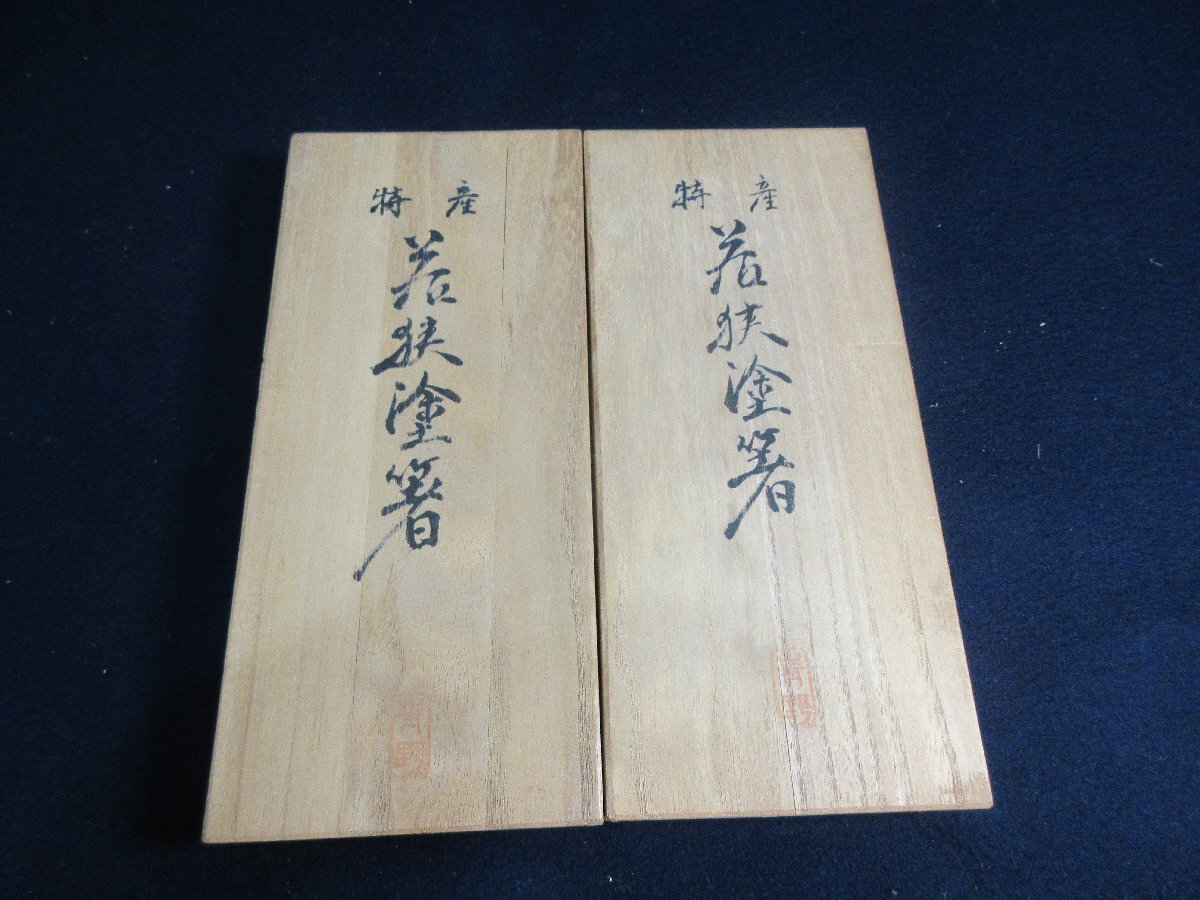 特産
若狭塗箸
特産
若狭塗箸